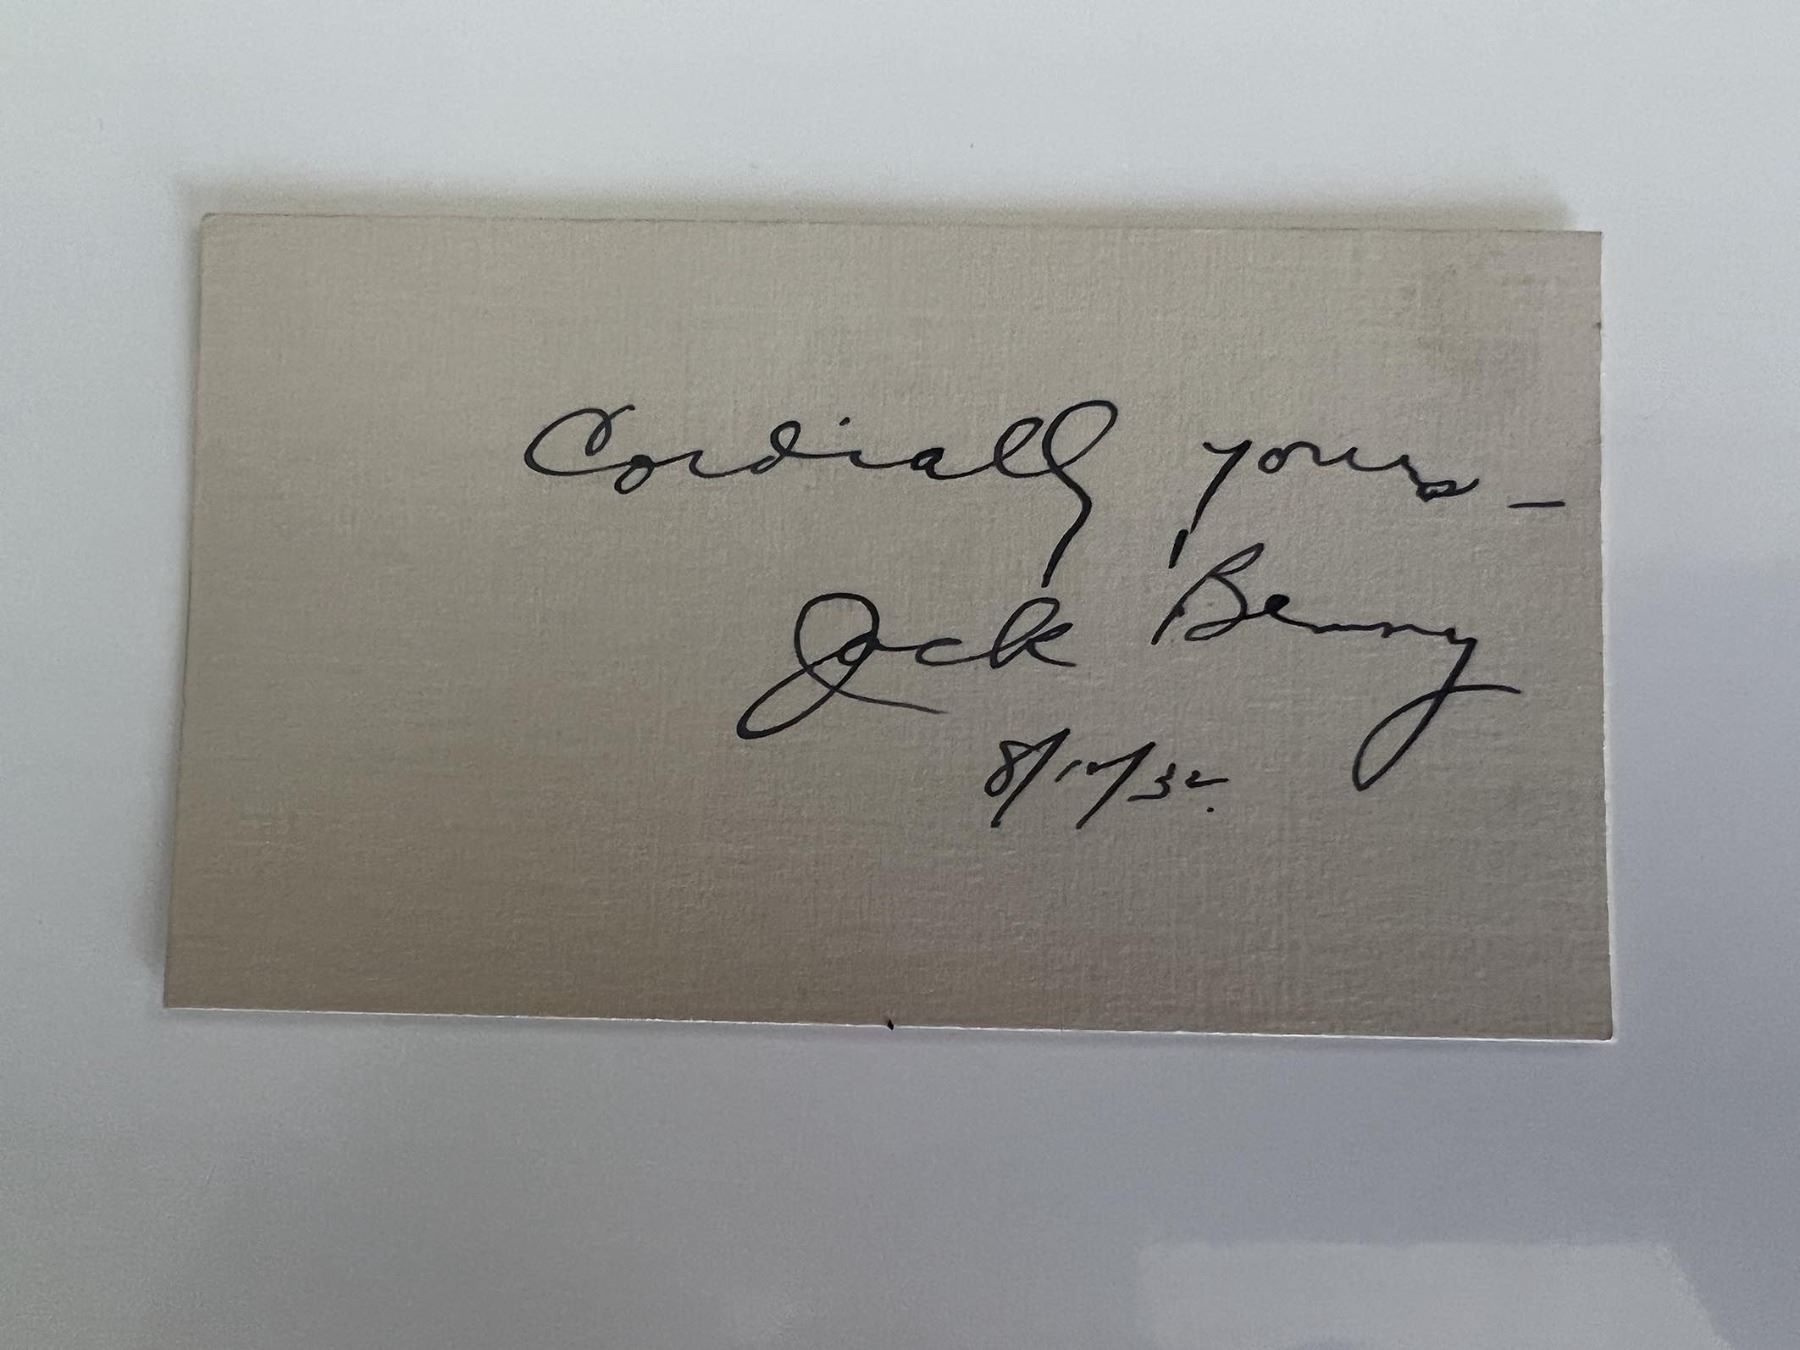 Cordially yours –
Jack Benny
8/12/32.